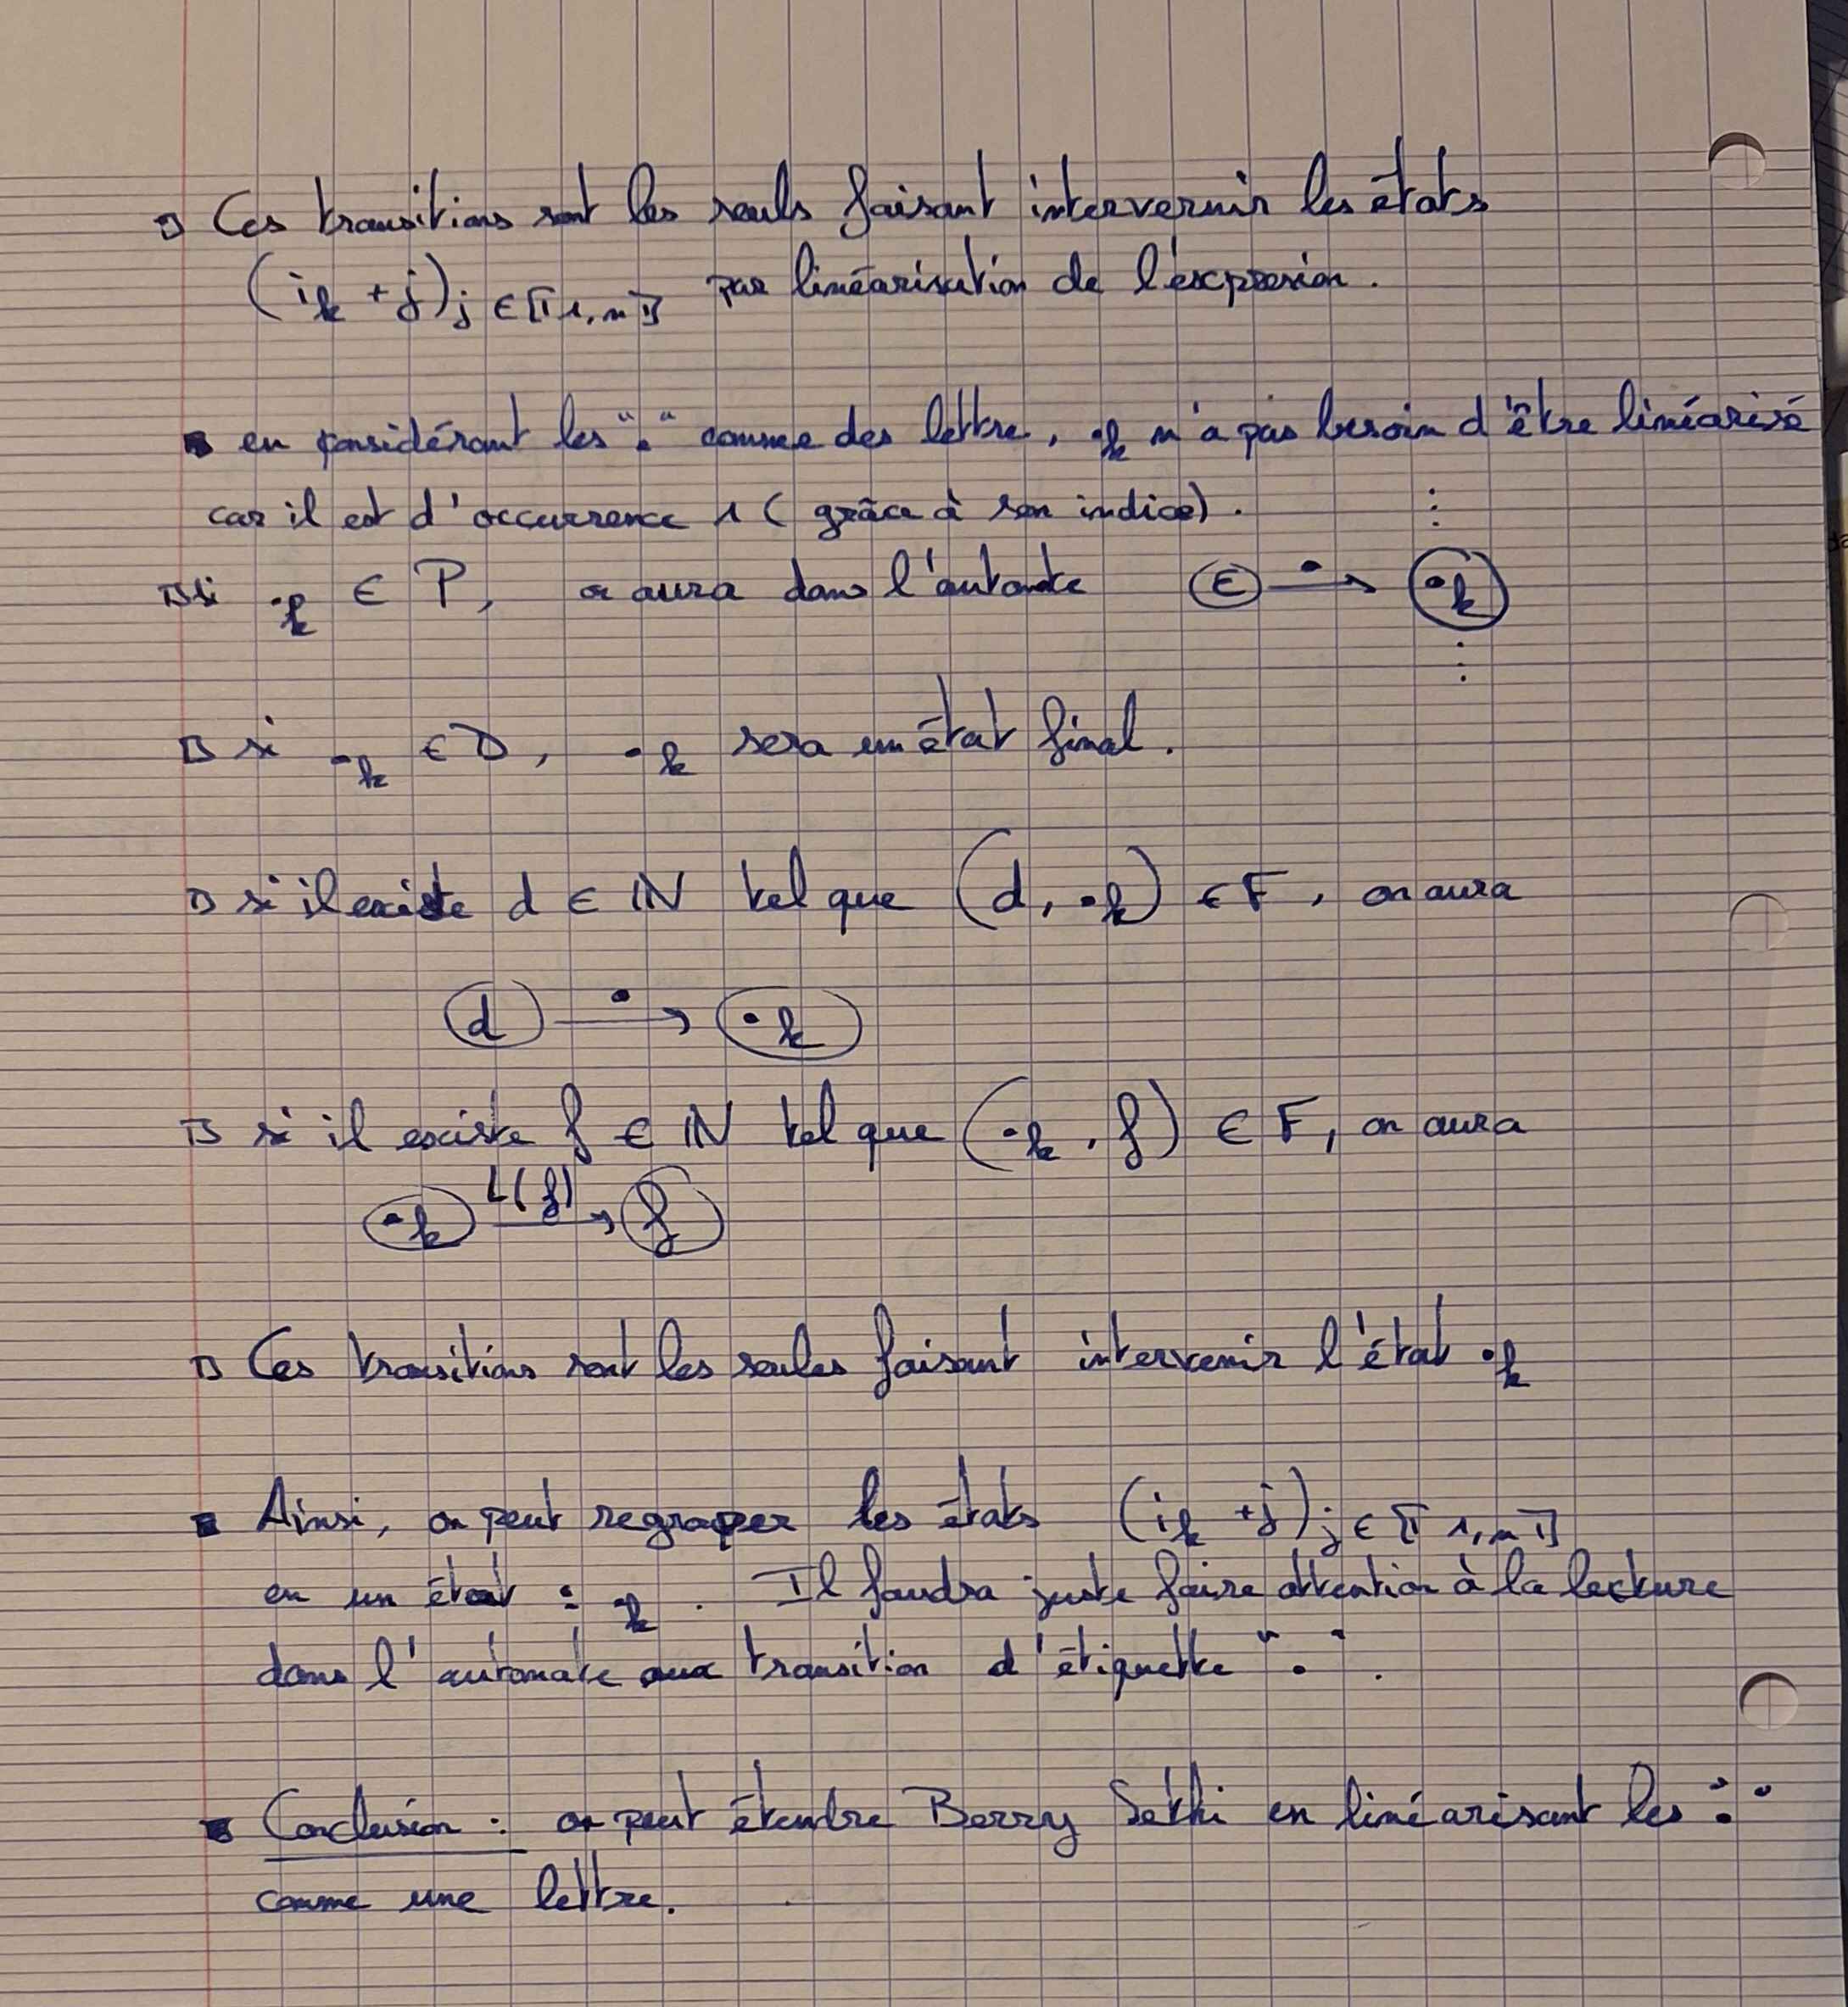 Ces transitions sont les seuls faisant intervenir les états
(i_k + j)_j ∈ ⟦1, n⟧ par linéarisation de l'expression.
en considérant les "." comme des lettre, ._k n'a pas besoin d'être linéarisé
car il est d'occurrence 1 (grâce à son indice).
si ._k ∈ P, on aura dans l'automate ε —.→ ._k
si ._k ∈ D, ._k sera un état final.
si il existe d ∈ ℕ tel que (d, ._k) ∈ F, on aura
d —.→ ._k
si il existe f ∈ ℕ tel que (._k, f) ∈ F, on aura
._k —L(f)→ f
Ces transitions sont les seules faisant intervenir l'état ._k
Ainsi, on peut regrouper les états (i_k + j)_j ∈ ⟦1, n⟧
en un état : ._k. Il faudra juste faire attention à la lecture
dans l'automate aux transition d'étiquette ".".
Conclusion : on peut étendre Berry Sethi en linéarisant les "."
comme une lettre.